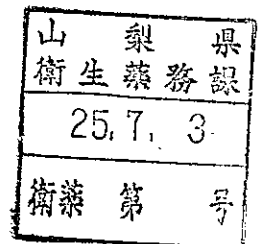 山梨県
衛生薬務課
25.7.3
衛薬第　号